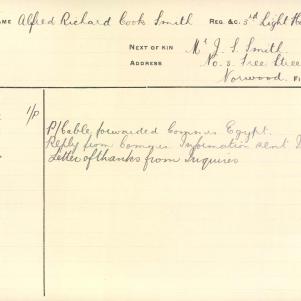 NAME Alfred Richard Cook Smith REG. &C. 3rd Light H
NEXT OF KIN Mr J. S. Smith
ADDRESS No. 3. Free Stree
Norwood
1/P
P/Cable, forwarded Comnrs Egypt.
Reply from Comnrs Information sent
Letter of thanks from Inquirer